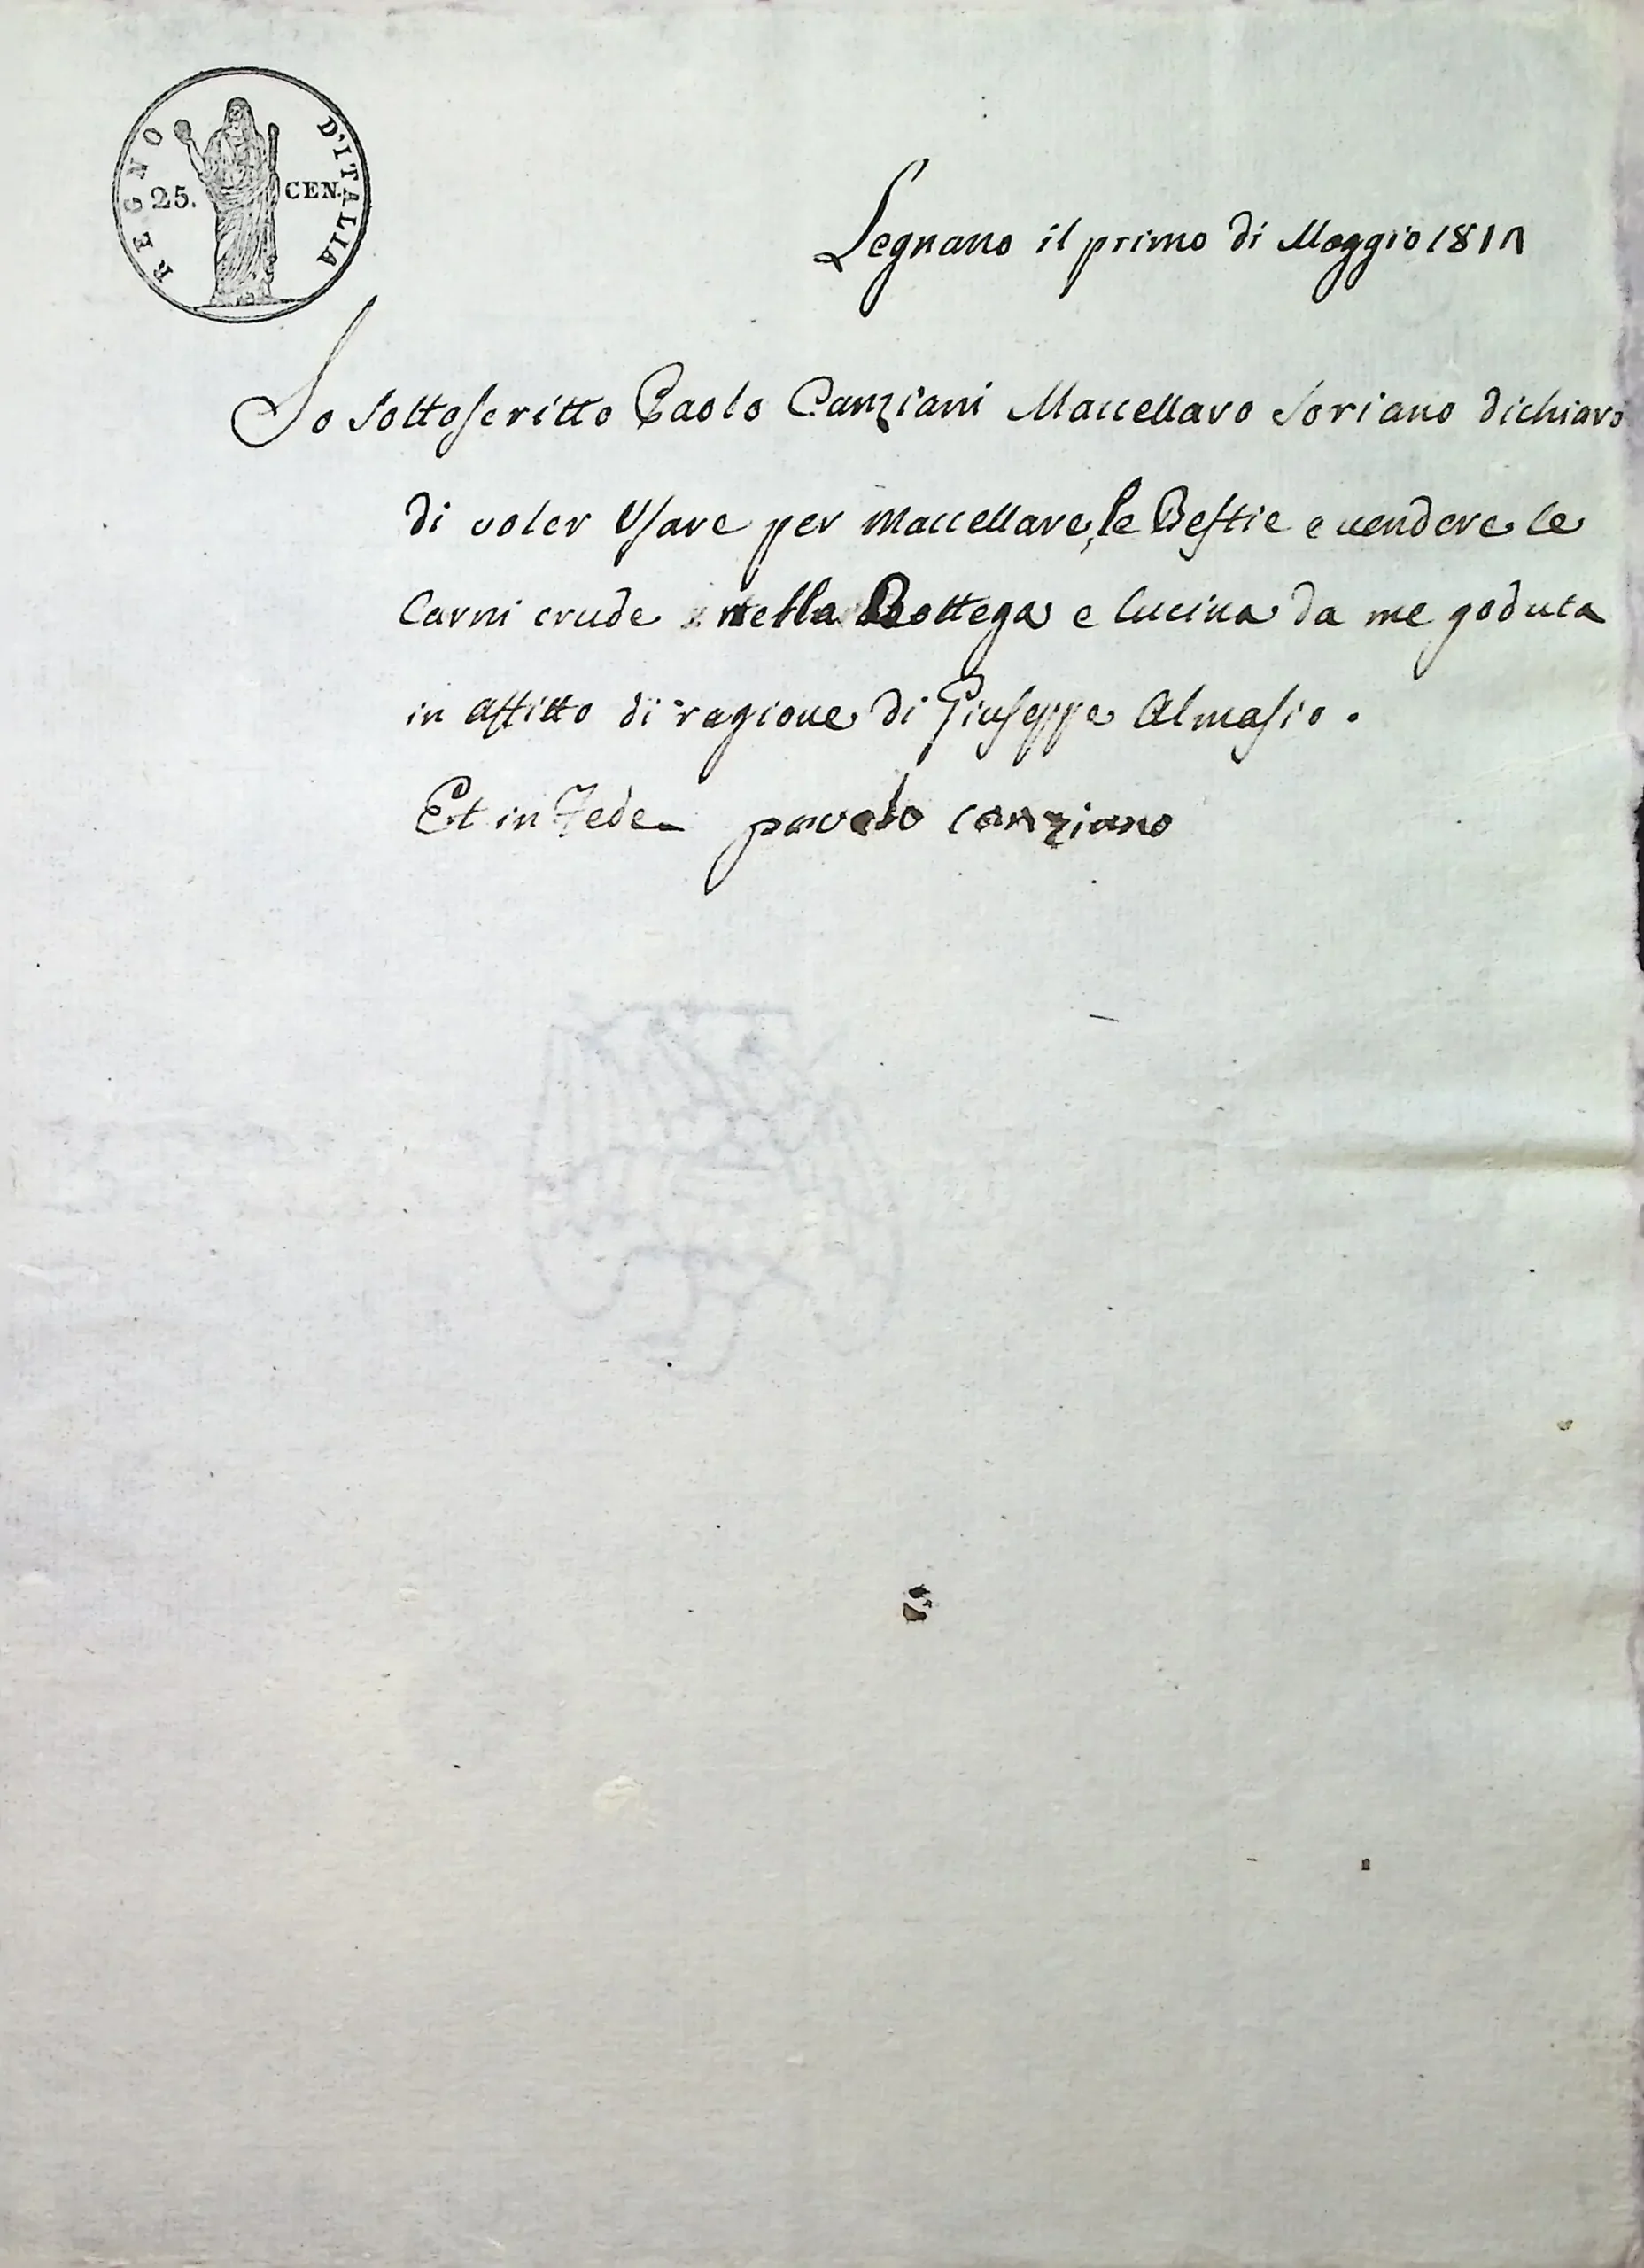 REGNO D'ITALIA
25. CEN.
Legnano il primo di Maggio 181
Io sottoscritto Paolo Canziani Maccellaro soriano dichiaro
di voler Usare per Maccellare, le Bestie e vendere le
Carni crude nella Bottega e Cucina da me goduta
in affitto di ragione di Giuseppe Almasio.
Et in Fede pavolo canziano